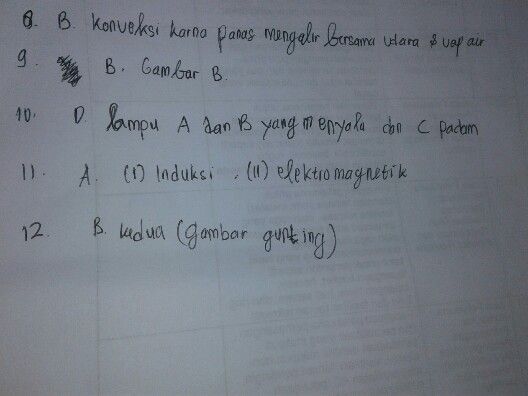 8. B. Konveksi karna panas mengalir bersama udara & uap air
9. B. Gambar B.
10. D. lampu A dan B yang menyala dan C padam
11. A. (I) Induksi, (II) elektromagnetik
12. B. kedua (gambar gunting)